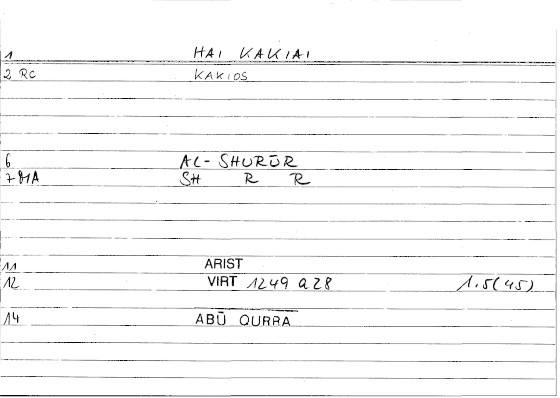 1 HAI KAKIAI
2 RC KAKIOS
6 AL-SHURŪR
7 MA SH R R
11 ARIST
12 VIRT 1249 a28 1.5(45)
14 ABŪ QURRA